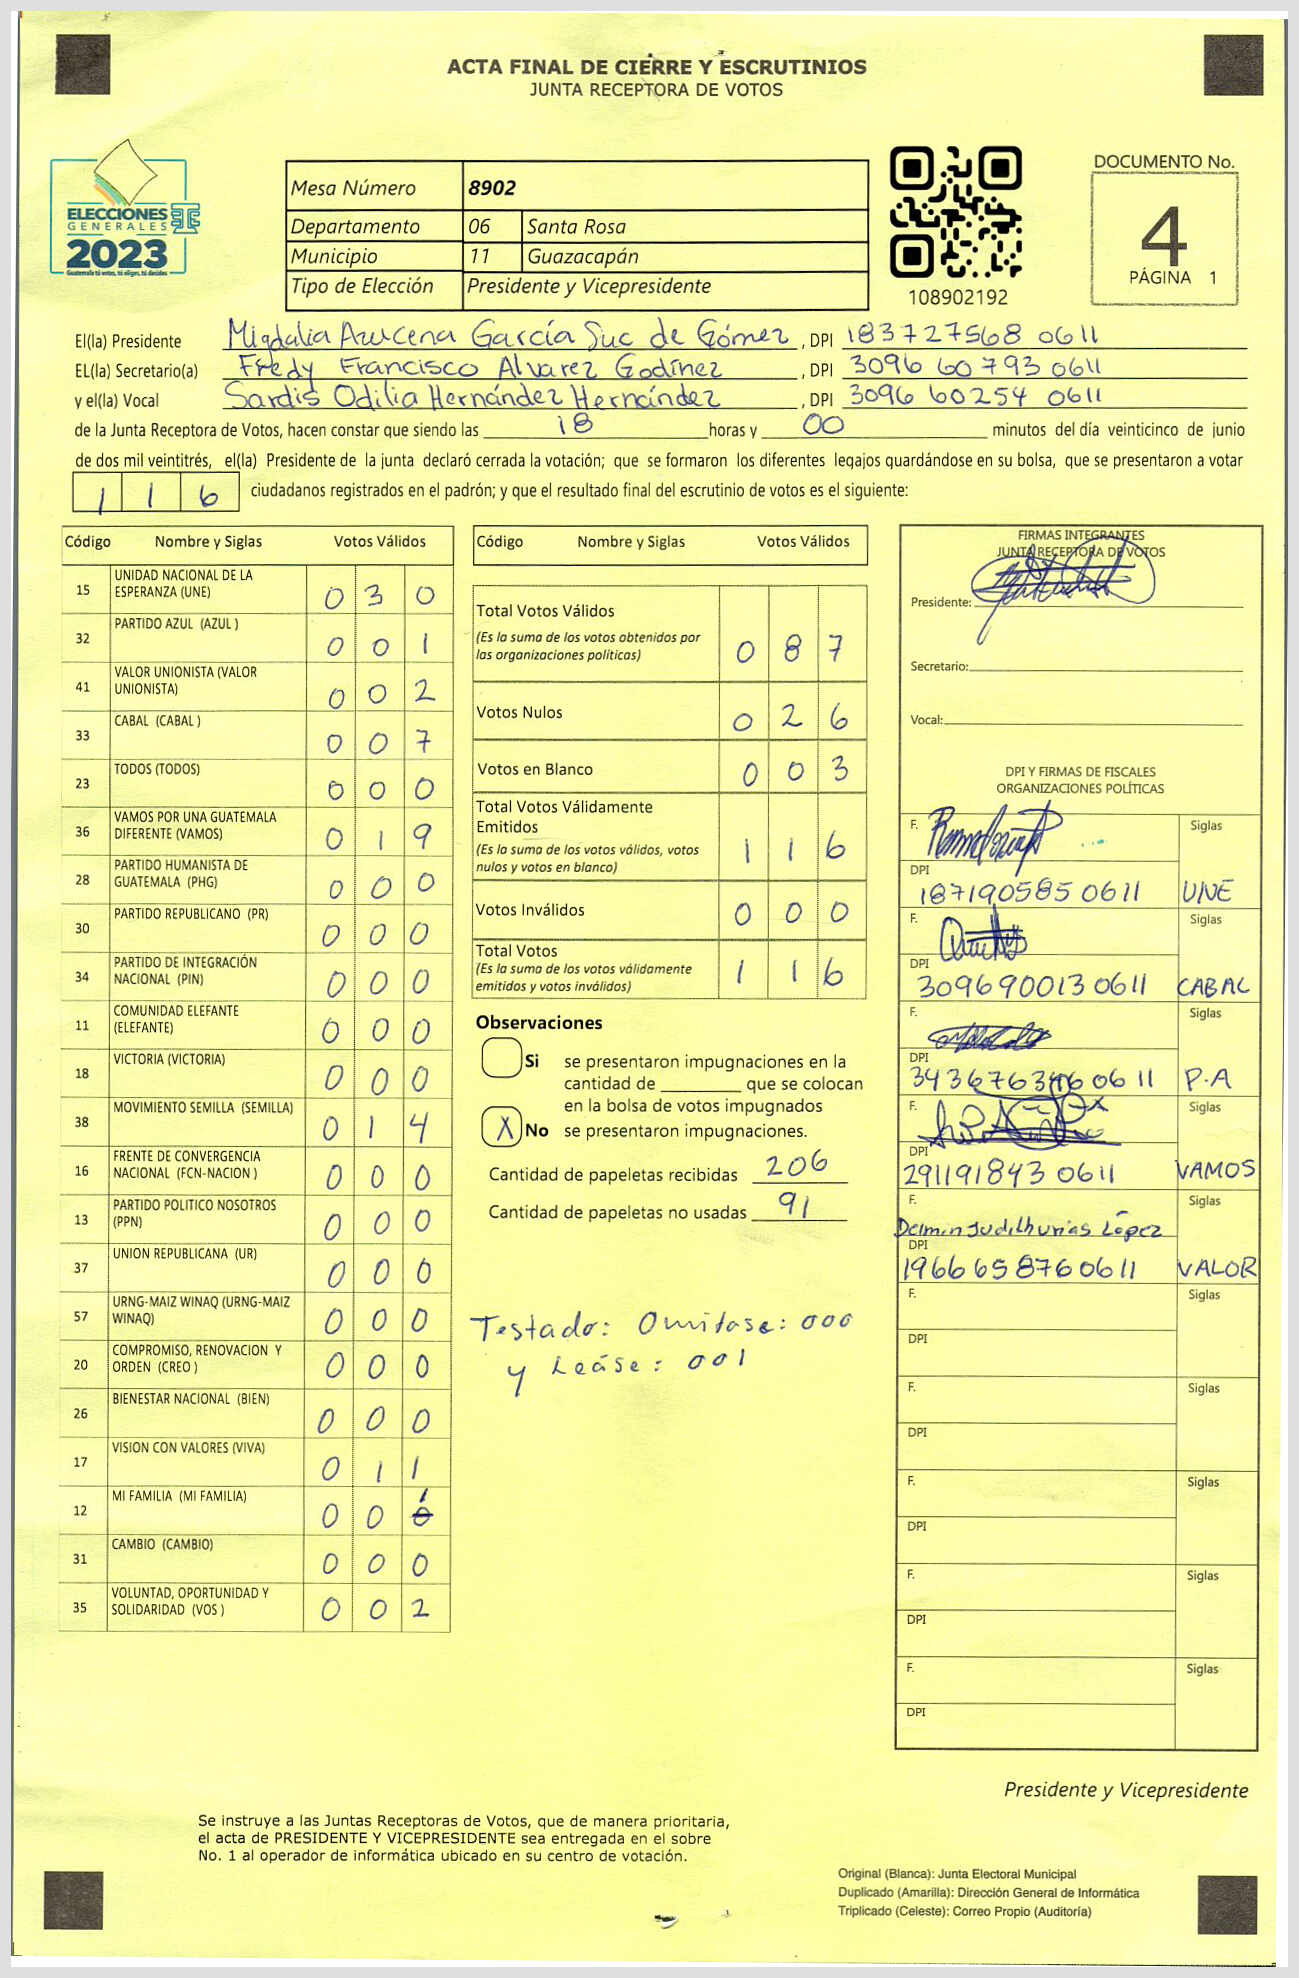 ACTA FINAL DE CIERRE Y ESCRUTINIOS
JUNTA RECEPTORA DE VOTOS
ELECCIONES
GENERALES
2023
Guatemala tú votas, tú eliges, tú decides
Mesa Número 8902
Departamento 06 Santa Rosa
Municipio 11 Guazacapán
Tipo de Elección Presidente y Vicepresidente
108902192
DOCUMENTO No.
4
PÁGINA 1
El(la) Presidente Migdalia Azucena García Suc de Gómez, DPI 183727568 0611
EL(la) Secretario(a) Fredy Francisco Alvarez Godínez, DPI 3096 60793 0611
y el(la) Vocal Sardis Odilia Hernández Hernández, DPI 3096 60254 0611
de la Junta Receptora de Votos, hacen constar que siendo las 18 horas y 00 minutos del día veinticinco de junio
de dos mil veintitrés, el(la) Presidente de la junta declaró cerrada la votación; que se formaron los diferentes legajos guardándose en su bolsa, que se presentaron a votar
116 ciudadanos registrados en el padrón; y que el resultado final del escrutinio de votos es el siguiente:
Código Nombre y Siglas Votos Válidos
15 UNIDAD NACIONAL DE LA ESPERANZA (UNE) 0 3 0
32 PARTIDO AZUL (AZUL ) 0 0 1
41 VALOR UNIONISTA (VALOR UNIONISTA) 0 0 2
33 CABAL (CABAL ) 0 0 7
23 TODOS (TODOS) 0 0 0
36 VAMOS POR UNA GUATEMALA DIFERENTE (VAMOS) 0 1 9
28 PARTIDO HUMANISTA DE GUATEMALA (PHG) 0 0 0
30 PARTIDO REPUBLICANO (PR) 0 0 0
34 PARTIDO DE INTEGRACIÓN NACIONAL (PIN) 0 0 0
11 COMUNIDAD ELEFANTE (ELEFANTE) 0 0 0
18 VICTORIA (VICTORIA) 0 0 0
38 MOVIMIENTO SEMILLA (SEMILLA) 0 1 4
16 FRENTE DE CONVERGENCIA NACIONAL (FCN-NACION ) 0 0 0
13 PARTIDO POLITICO NOSOTROS (PPN) 0 0 0
37 UNION REPUBLICANA (UR) 0 0 0
57 URNG-MAIZ WINAQ (URNG-MAIZ WINAQ) 0 0 0
20 COMPROMISO, RENOVACION Y ORDEN (CREO ) 0 0 0
26 BIENESTAR NACIONAL (BIEN) 0 0 0
17 VISION CON VALORES (VIVA) 0 1 1
12 MI FAMILIA (MI FAMILIA) 0 0 0 1
31 CAMBIO (CAMBIO) 0 0 0
35 VOLUNTAD, OPORTUNIDAD Y SOLIDARIDAD (VOS ) 0 0 2
Código Nombre y Siglas Votos Válidos
Total Votos Válidos 0 8 7
(Es la suma de los votos obtenidos por
las organizaciones políticas)
Votos Nulos 0 2 6
Votos en Blanco 0 0 3
Total Votos Válidamente
Emitidos 1 1 6
(Es la suma de los votos válidos, votos
nulos y votos en blanco)
Votos Inválidos 0 0 0
Total Votos 1 1 6
(Es la suma de los votos válidamente
emitidos y votos inválidos)
Observaciones
Si se presentaron impugnaciones en la
cantidad de ________ que se colocan
en la bolsa de votos impugnados
X No se presentaron impugnaciones.
Cantidad de papeletas recibidas 206
Cantidad de papeletas no usadas 91
Testado: Omitase: 000
y Leáse: 001
FIRMAS INTEGRANTES
JUNTA RECEPTORA DE VOTOS
Presidente:
Secretario:
Vocal:
DPI Y FIRMAS DE FISCALES
ORGANIZACIONES POLÍTICAS
F. Siglas
DPI
187190585 0611 UNE
F. Siglas
DPI
309690013 0611 CABAL
F. Siglas
DPI
0611 P.A
F. Siglas
DPI
291191843 0611 VAMOS
F. Siglas
López
DPI
196665876 0611 VALOR
F. Siglas
DPI
F. Siglas
DPI
F. Siglas
DPI
F. Siglas
DPI
F. Siglas
DPI
Presidente y Vicepresidente
Se instruye a las Juntas Receptoras de Votos, que de manera prioritaria,
el acta de PRESIDENTE Y VICEPRESIDENTE sea entregada en el sobre
No. 1 al operador de informática ubicado en su centro de votación.
Original (Blanca): Junta Electoral Municipal
Duplicado (Amarilla): Dirección General de Informática
Triplicado (Celeste): Correo Propio (Auditoría)